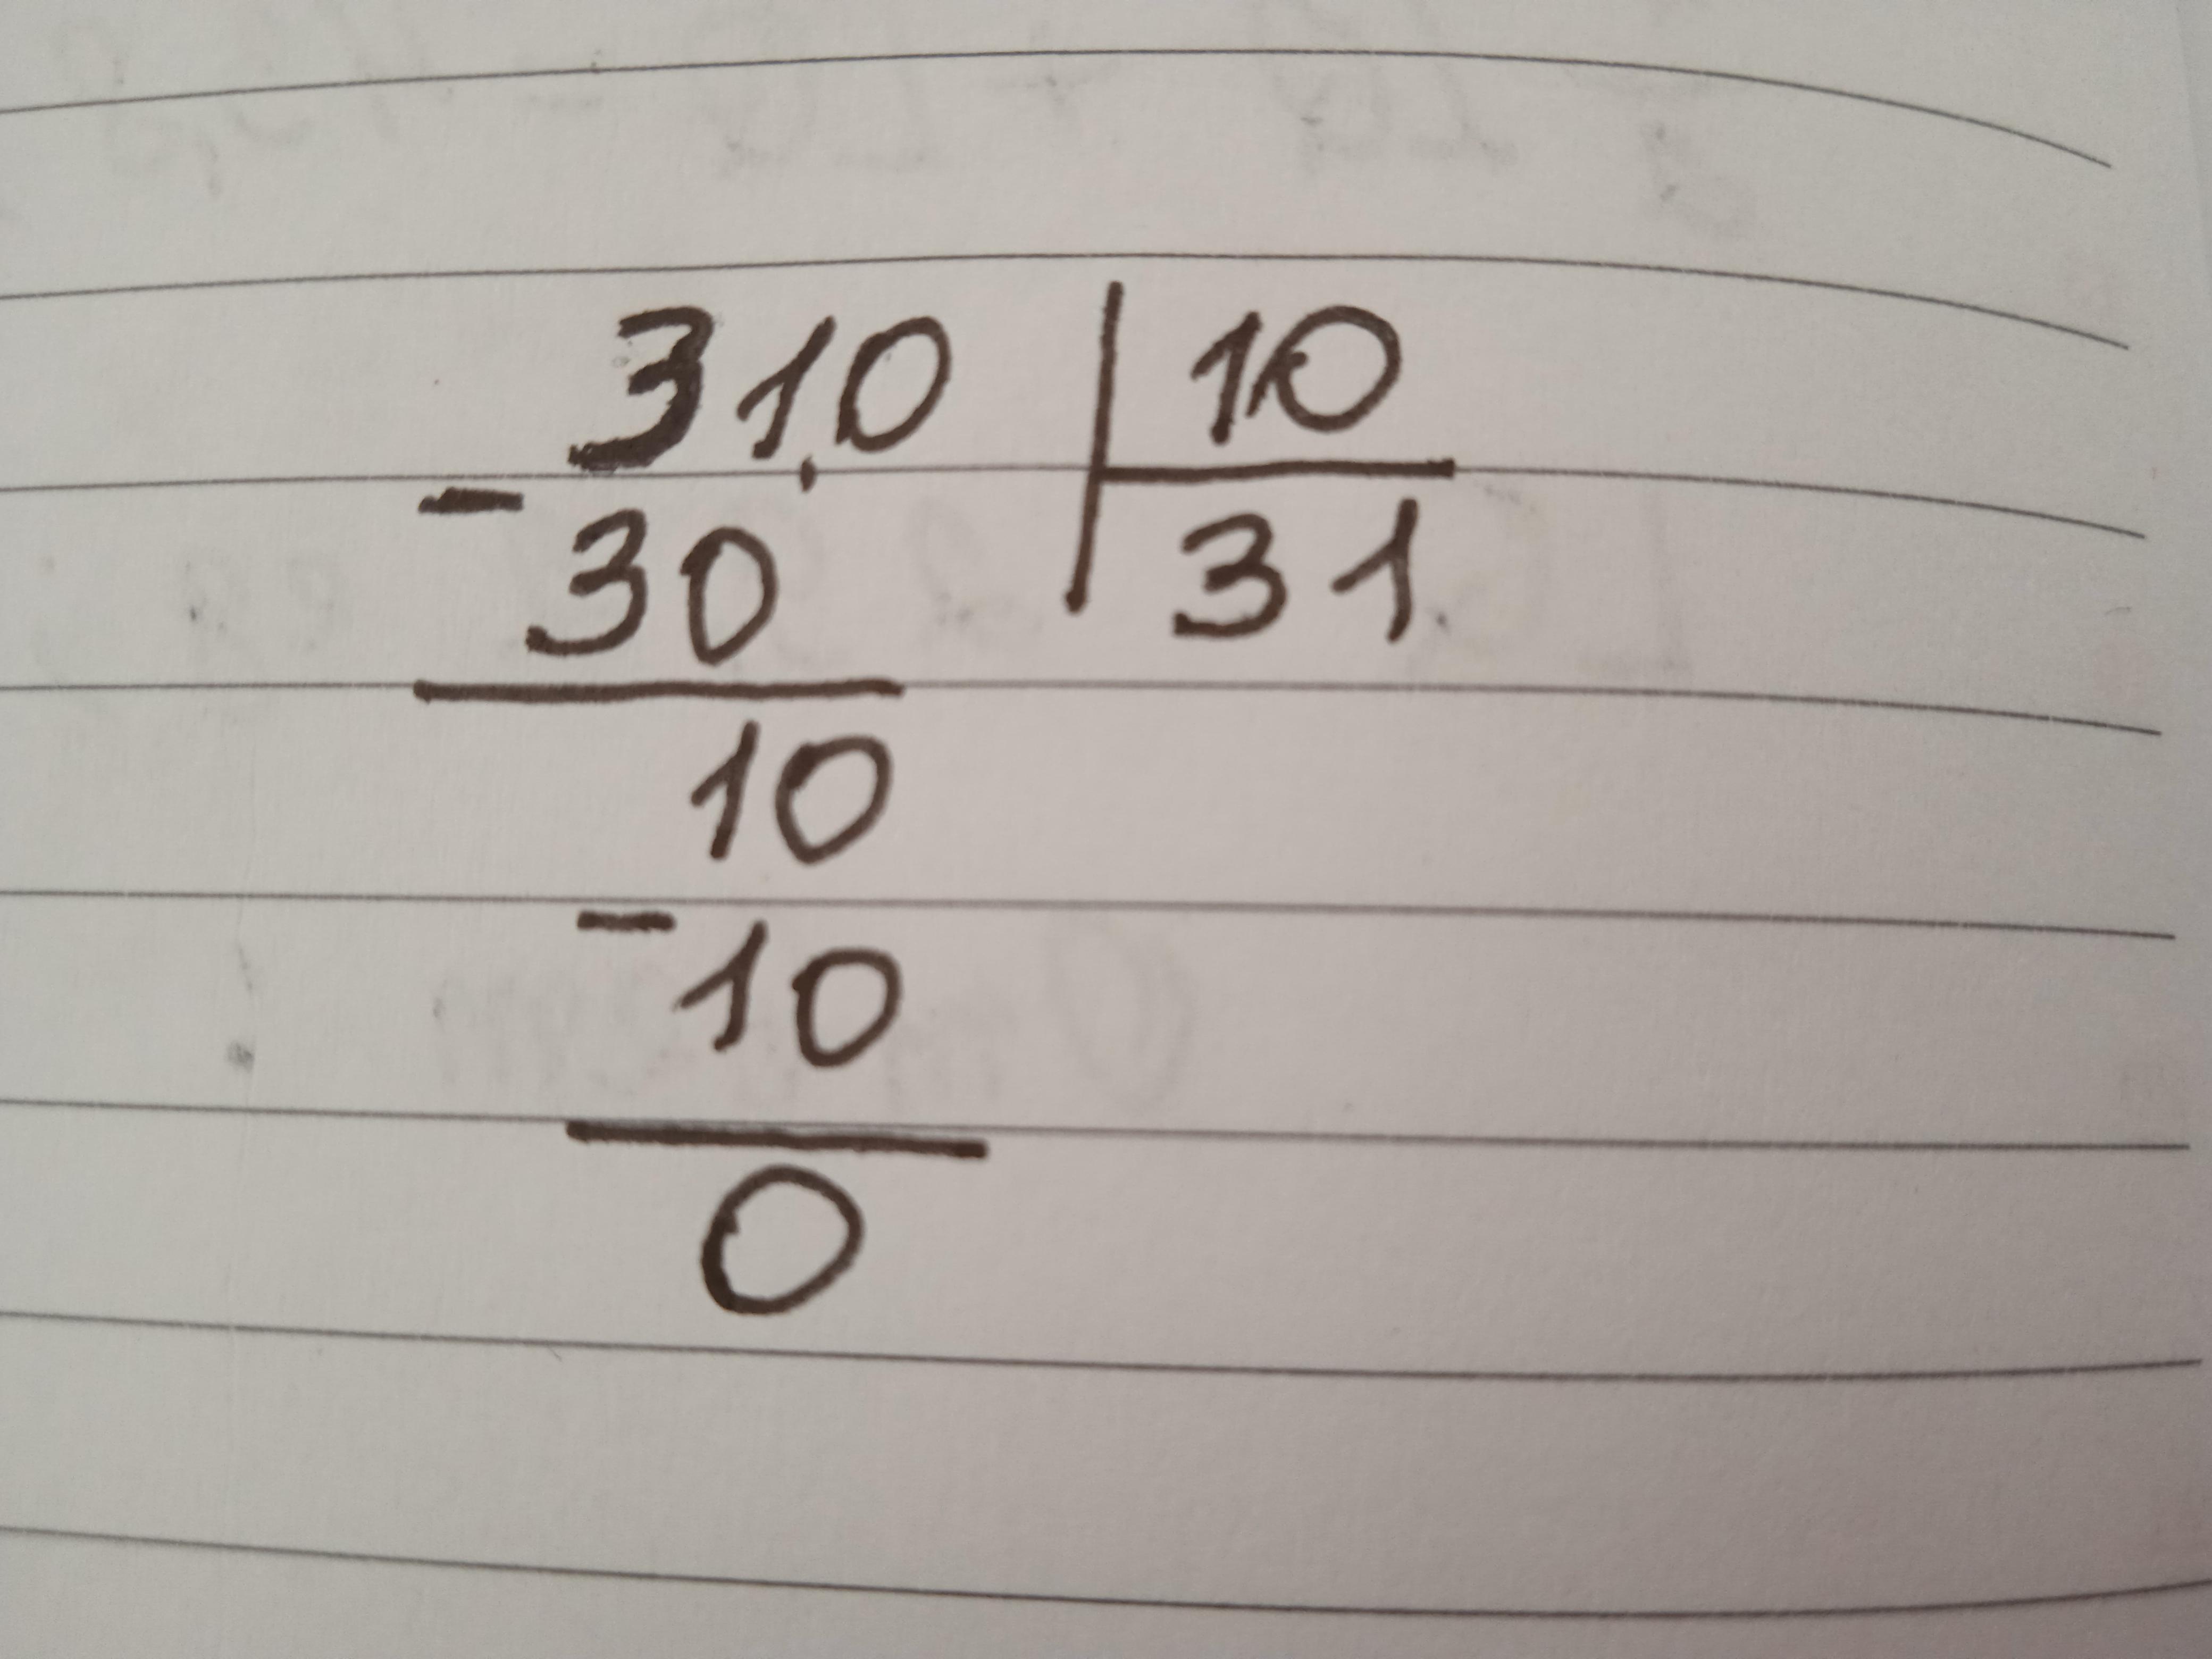 310 | 10
- 30 31
10
- 10
0